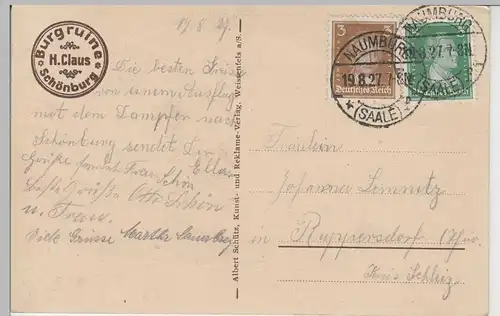 19.8.27.
Burgruine
H. Claus
Schönburg
Die besten Grüße
von einem Ausflug
mit dem Dampfer nach
Schönburg sendet Dir
Ella.
Grüße Familie Franz Schön
beste Grüße Otto Schön
u. Frau.
Viele Grüsse Martha
3
Deutsches Reich
NAUMBURG
19.8.27. 7-8N.
(SAALE)
NAUMBURG
19.8.27. 7-8N.
(SAALE)
Albert Schütz, Kunst- und Reklame-Verlag, Weissenfels a/S.
Fräulein
Johanna
in Ruppersdorf Thür.
Kreis Schleiz.